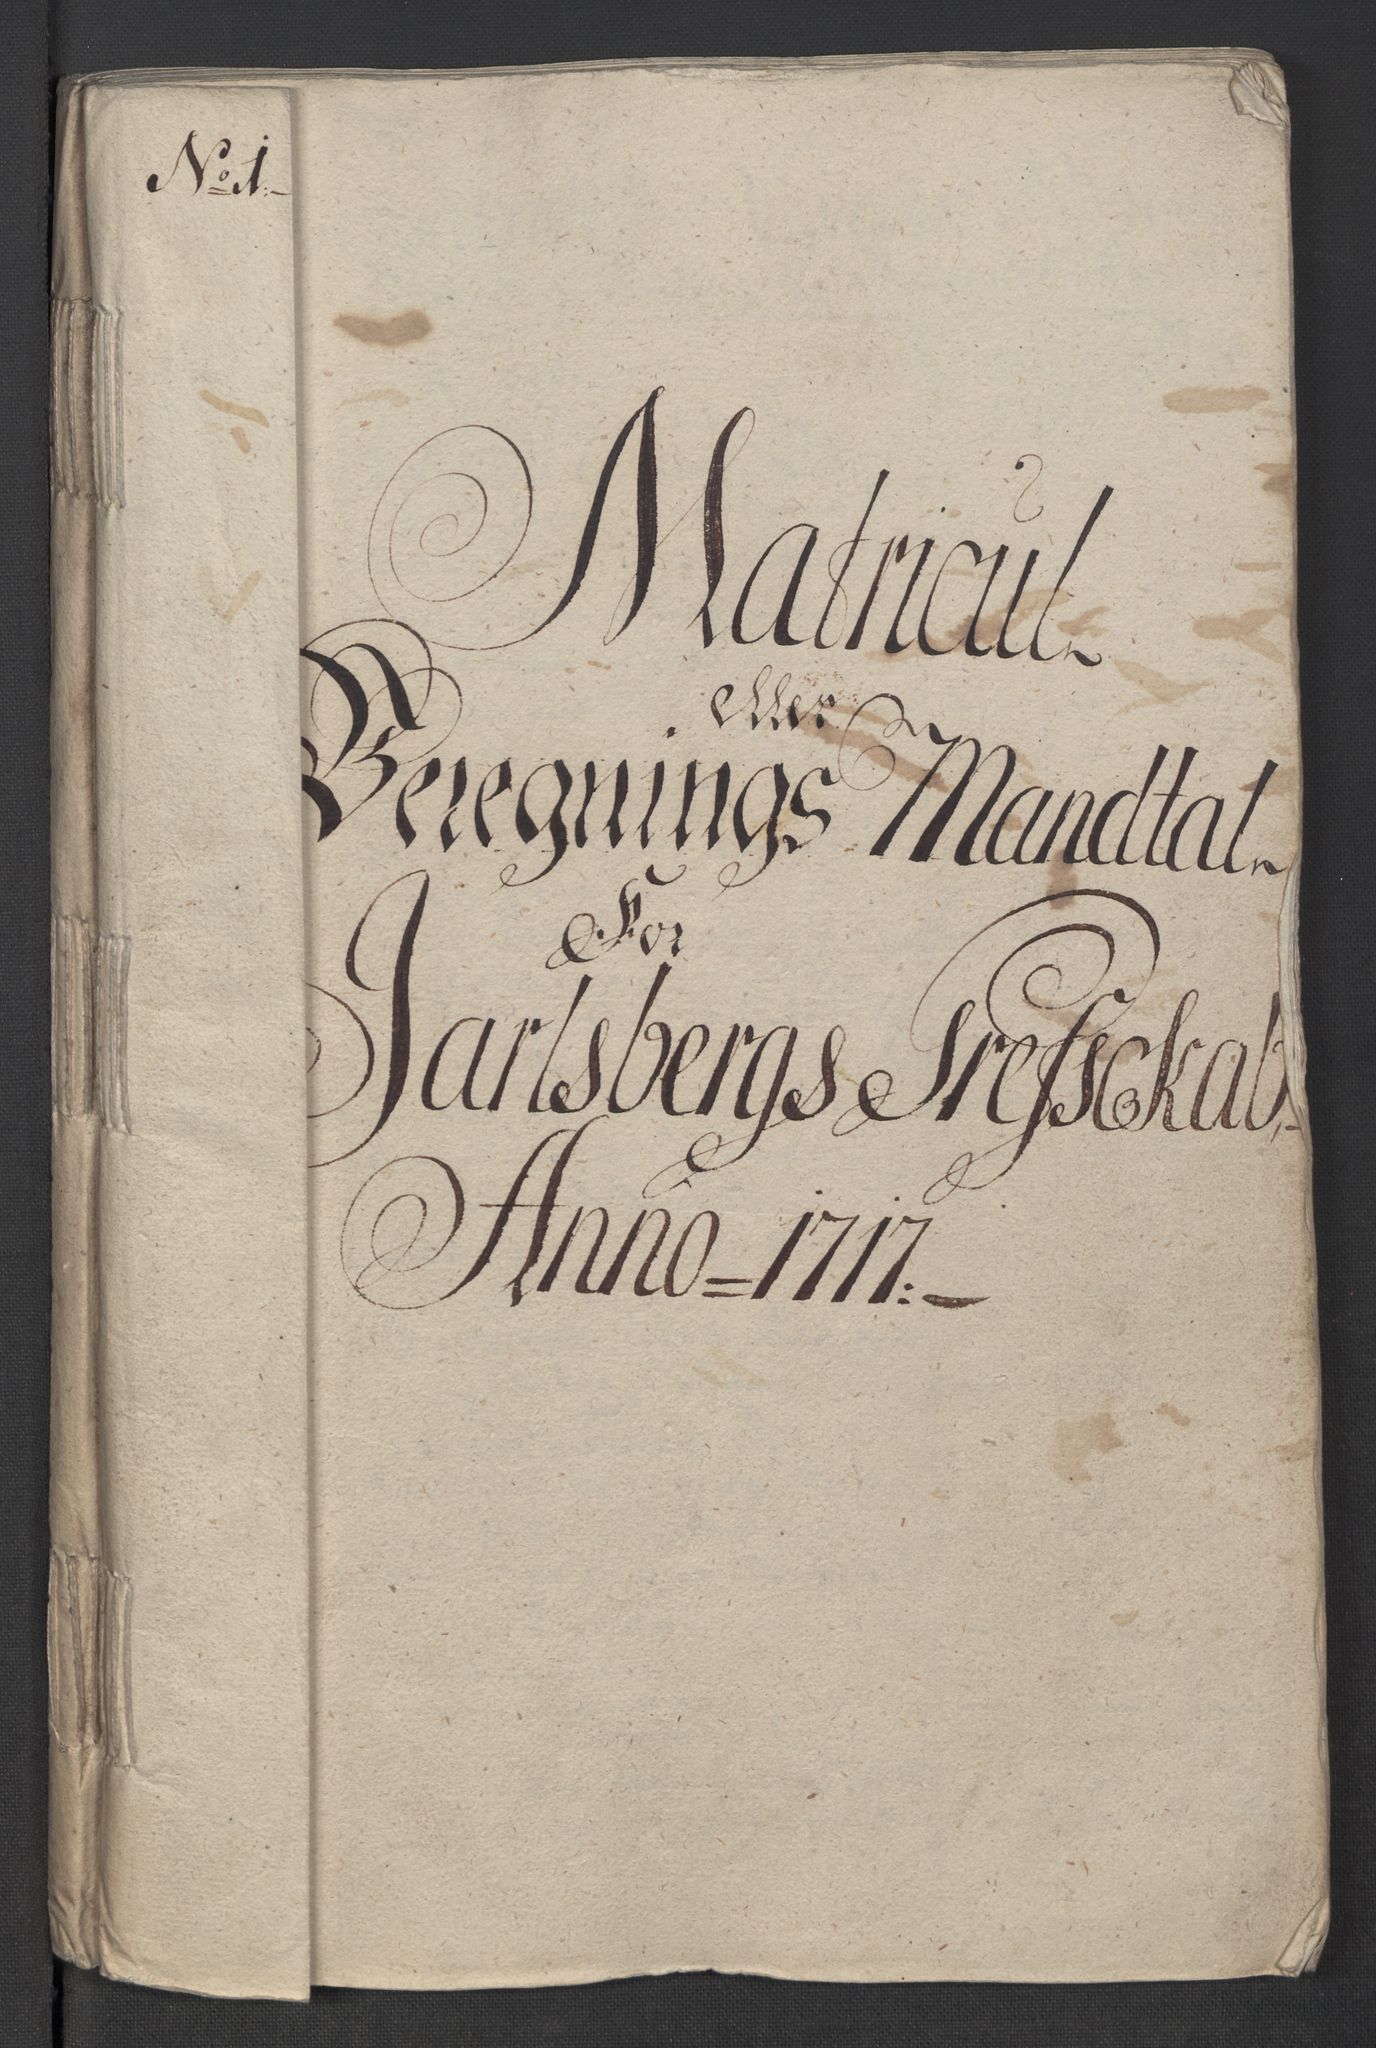 No 1.
Matricul
eller
Beregnings Mandtal
For
Jarlsbergs Grefsckab
Anno = 1717: